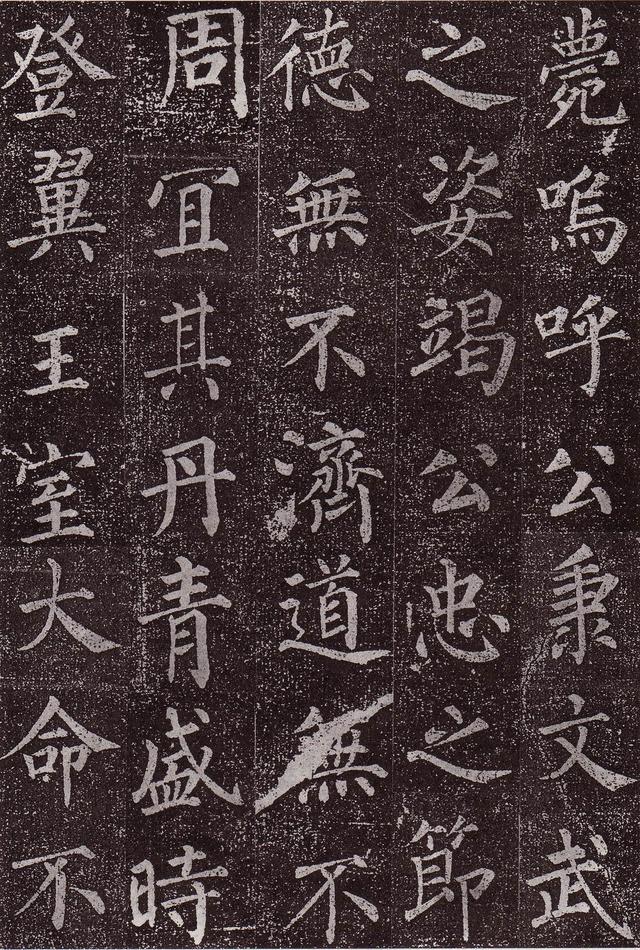 薨嗚呼公秉文武
之姿竭公忠之節
德無不濟道無不
周宜其丹青盛時
登翼王室大命不